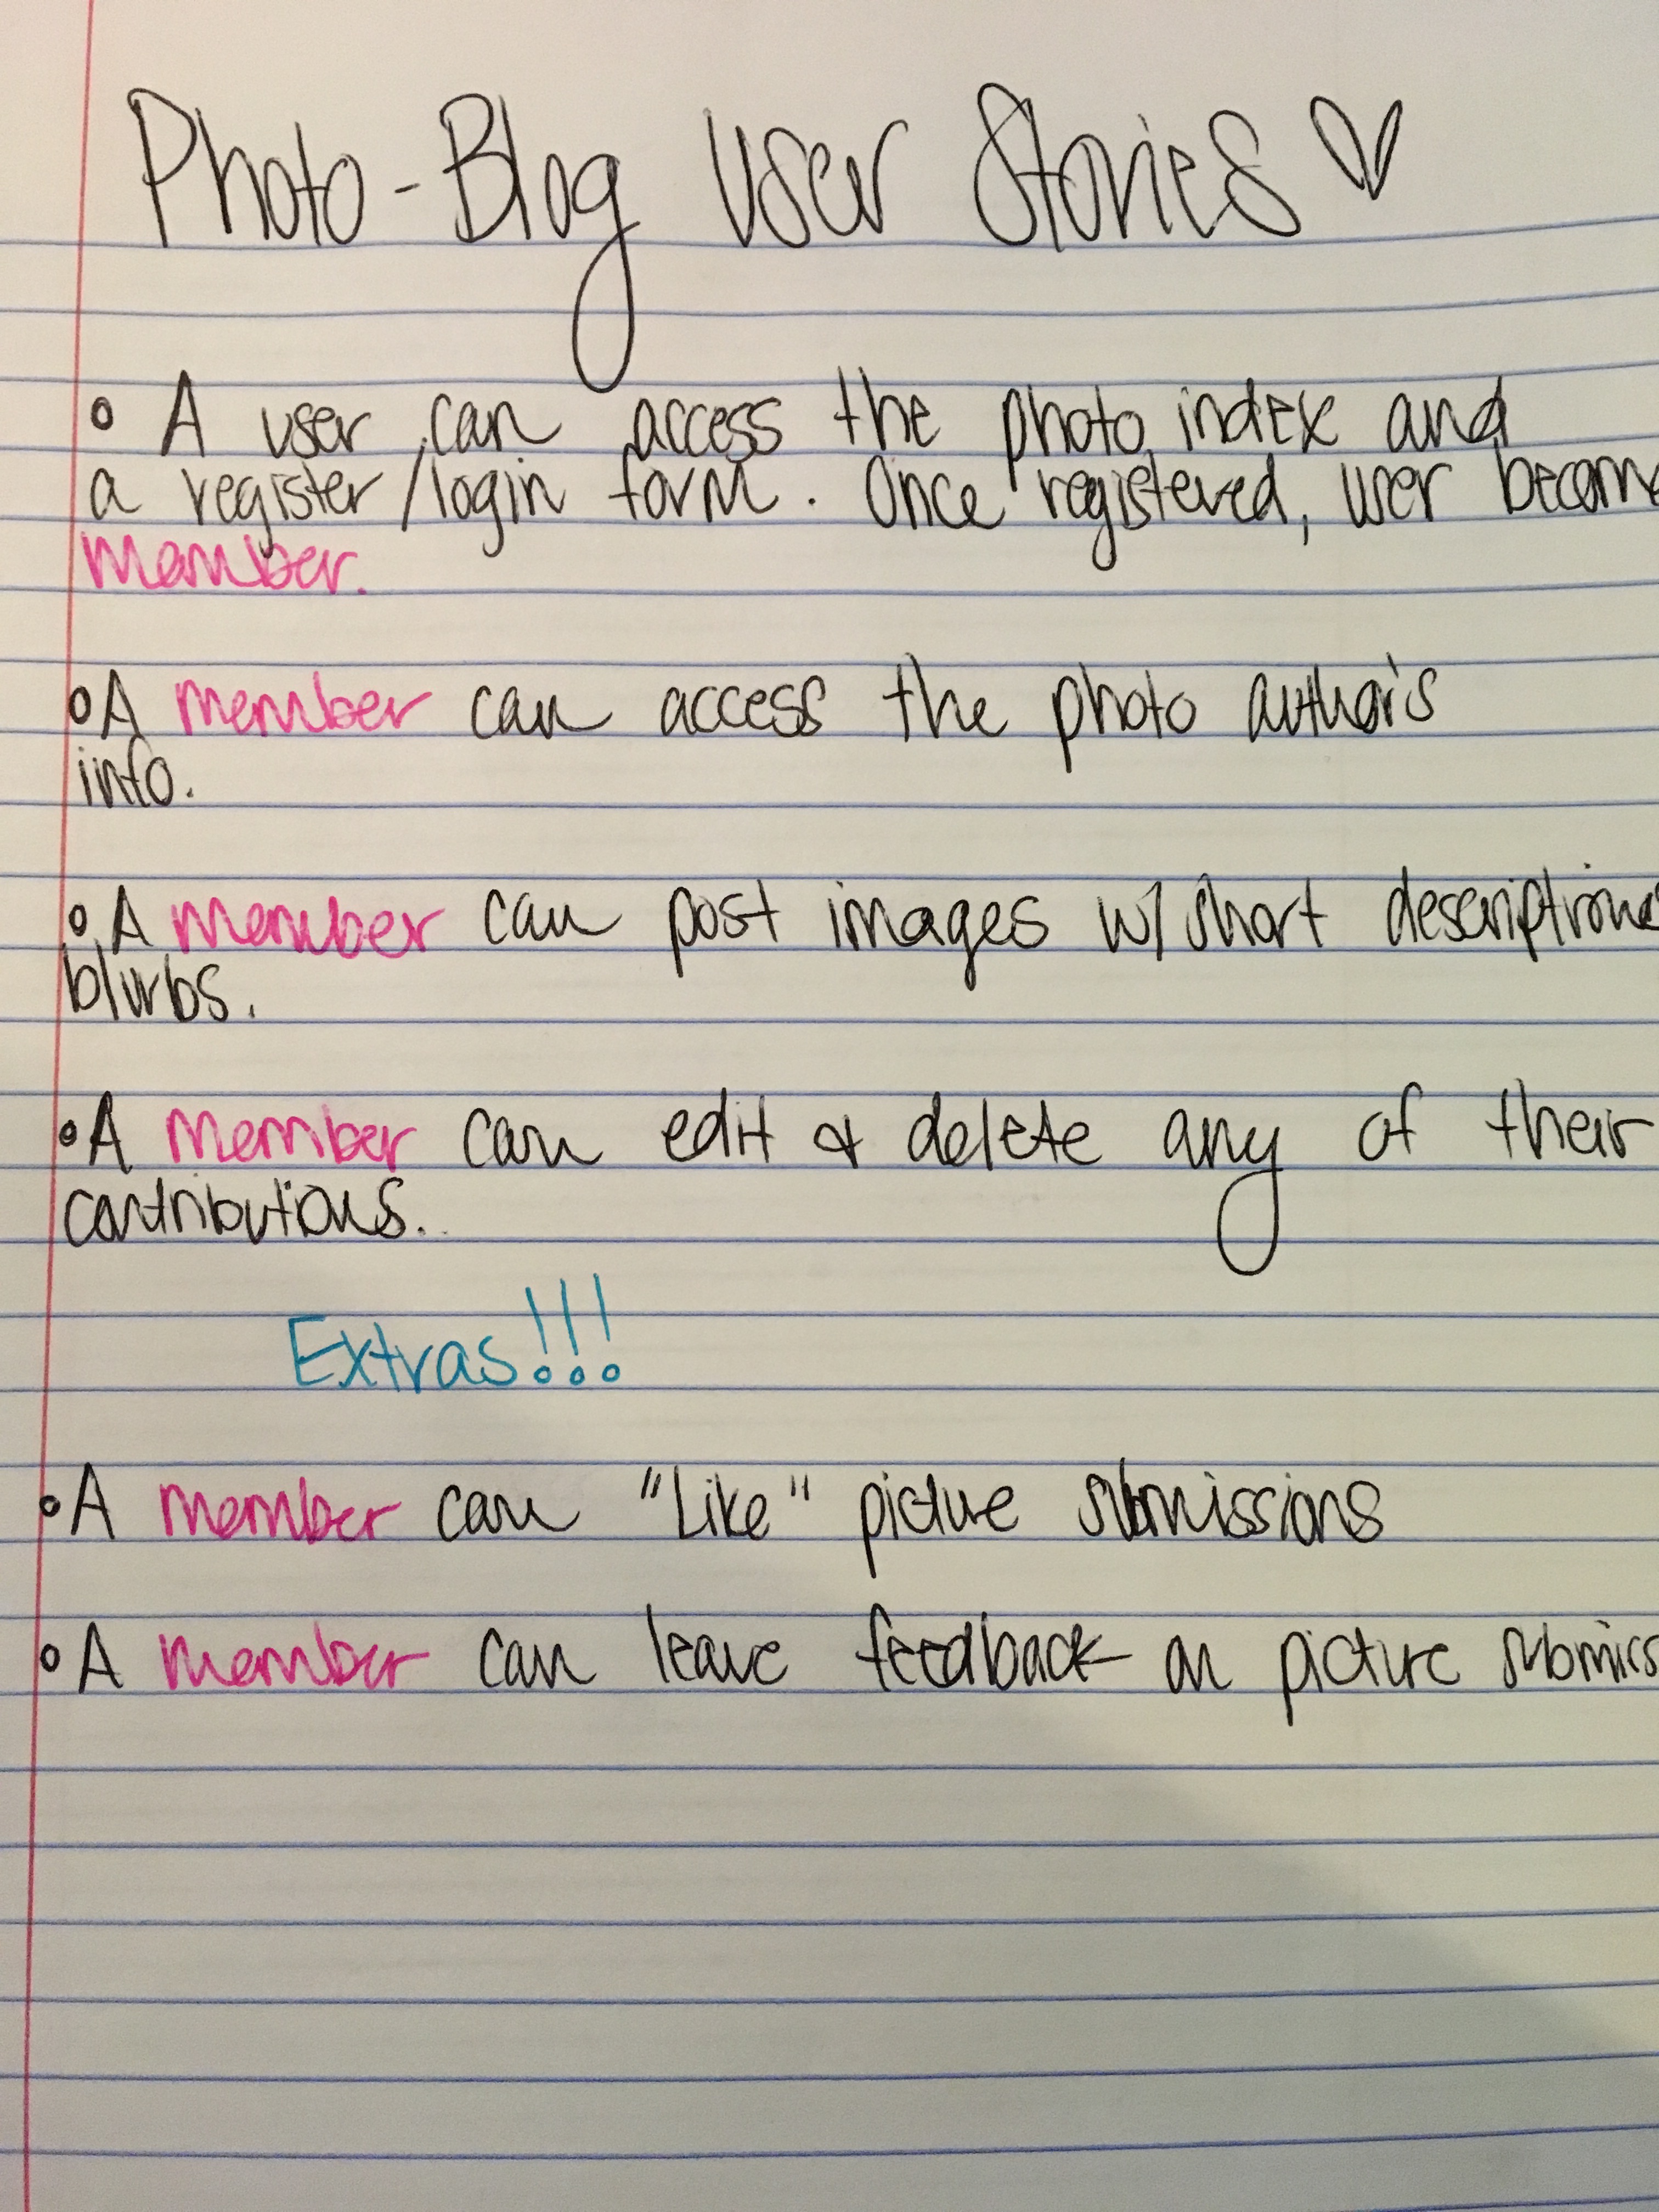 Photo-Blog User Stories ♡
○ A user can access the photo index and
a register/login form. Once registered, user becom
member.
○ A member can access the photo author's
info.
○ A member can post images w/ short description
blurbs.
○ A member can edit & delete any of their
contributions.
Extras!!!
○ A member can "Like" picture submissions
○ A member can leave feedback on picture submiss